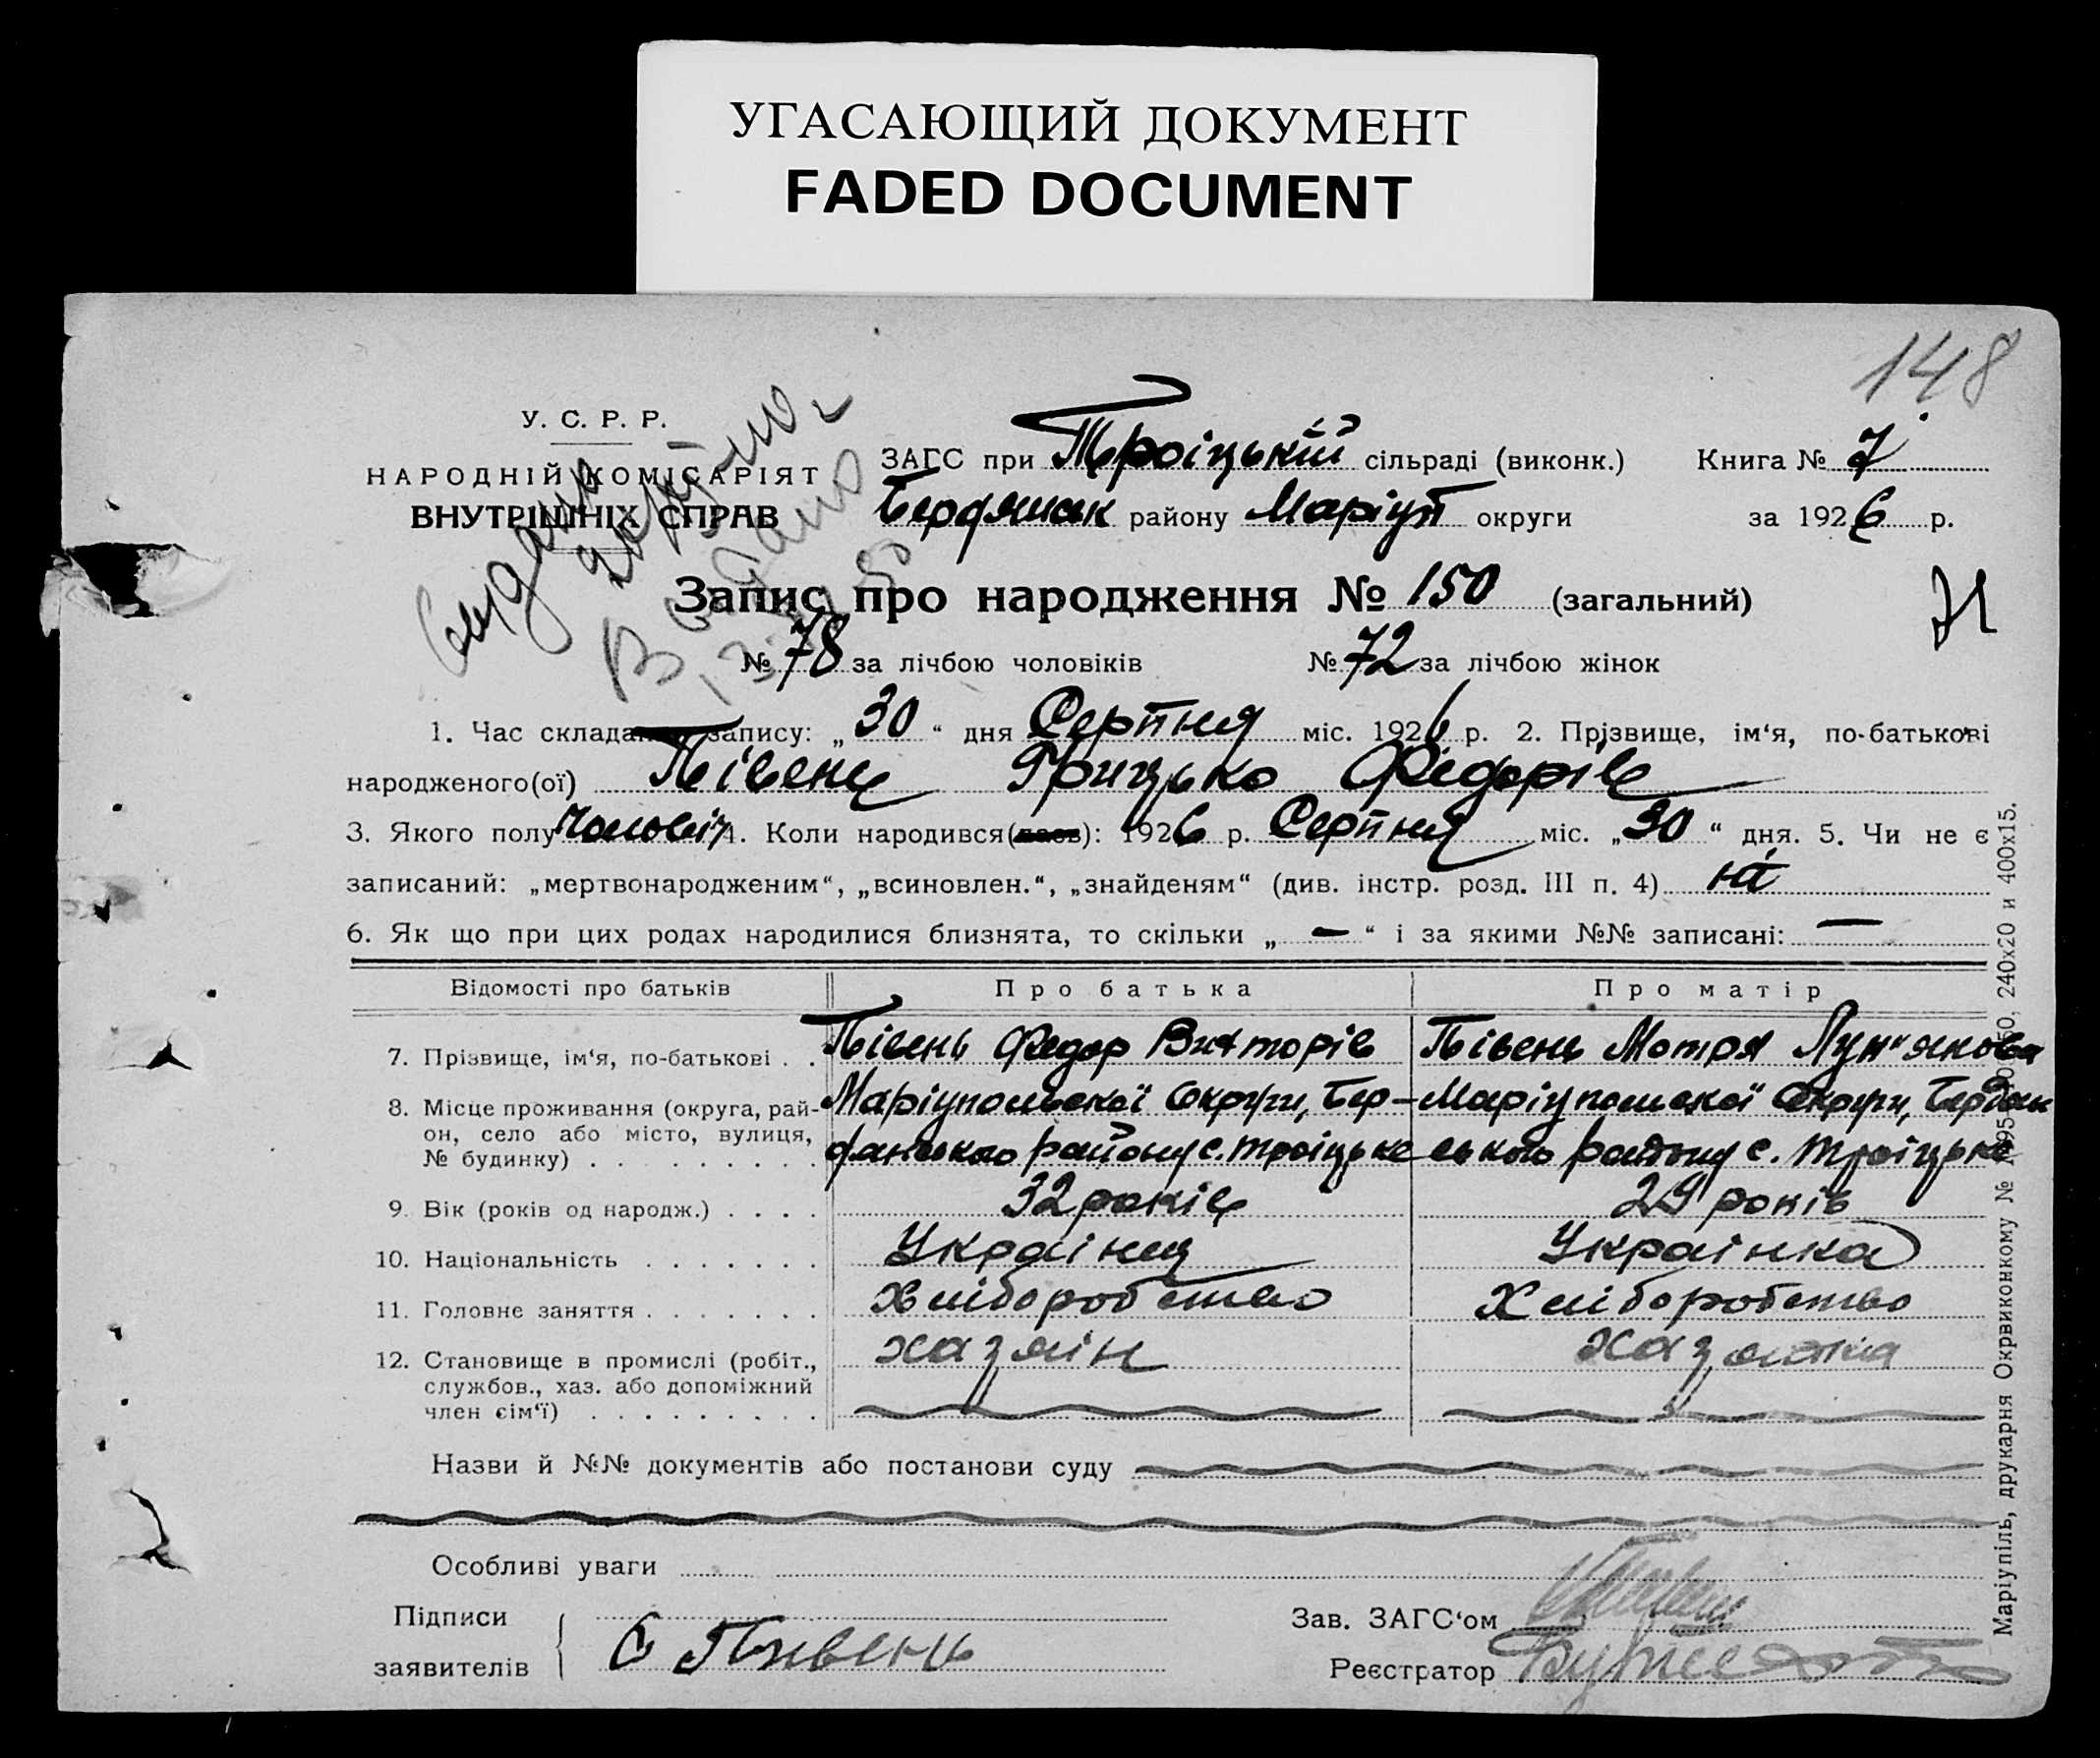 УГАСАЮЩИЙ ДОКУМЕНТ
FADED DOCUMENT
148
У. С. Р. Р.
НАРОДНІЙ КОМІСАРІЯТ
ВНУТРІШНІХ СПРАВ
ЗАГС при Троіцькій сільраді (виконк.) Книга № 7
Бердянськ району Маріуп округи за 1926 р.
Запис про народження № 150 (загальний)
№ 78 за лічбою чоловіків № 72 за лічбою жінок
1. Час складання запису: „30“ дня Серпня міс. 1926 р. 2. Прізвище, ім‘я, по-батькові
народженого(ої) Півень Грицько Федорів
3. Якого полу Чоловіч 4. Коли народився(лась): 1926 р. Серпня міс. „30“ дня. 5. Чи не є
записаний: „мертвонародженим“, „всиновлен.“, „знайденям“ (див. інстр. розд. III п. 4) ні
6. Як що при цих родах народилися близнята, то скільки „ — “ і за якими №№ записані: —
Відомості про батьків Про батька Про матір
7. Прізвище, ім‘я, по-батькові . . Півень Федор Викторів Півень Мотря Лук'янова
8. Місце проживання (округа, рай- Маріупольської Округи, Бер- Маріупольскої Округи, Бердян
он, село або місто, вулиця, дянського району с. Троіцьке ського району с. Троіцьке
№ будинку) . . . . . . . . .
9. Вік (років од народж.) . . . . 32 років 29 років
10. Національність . . . . . . . Украінец Украінка
11. Головне заняття . . . . . . . Хліборобство Хліборобство
12. Становище в промислі (робіт., хазяін хазяйка
службов., хаз. або допоміжний
член сім‘ї) . . . . . . . . .
Назви й №№ документів або постанови суду
Особливі уваги
Підписи
заявителів Пивень
Зав. ЗАГС‘ом
Реєстратор
Маріупіль, друкарня Окрвиконкому № 240x20 и 400x15.